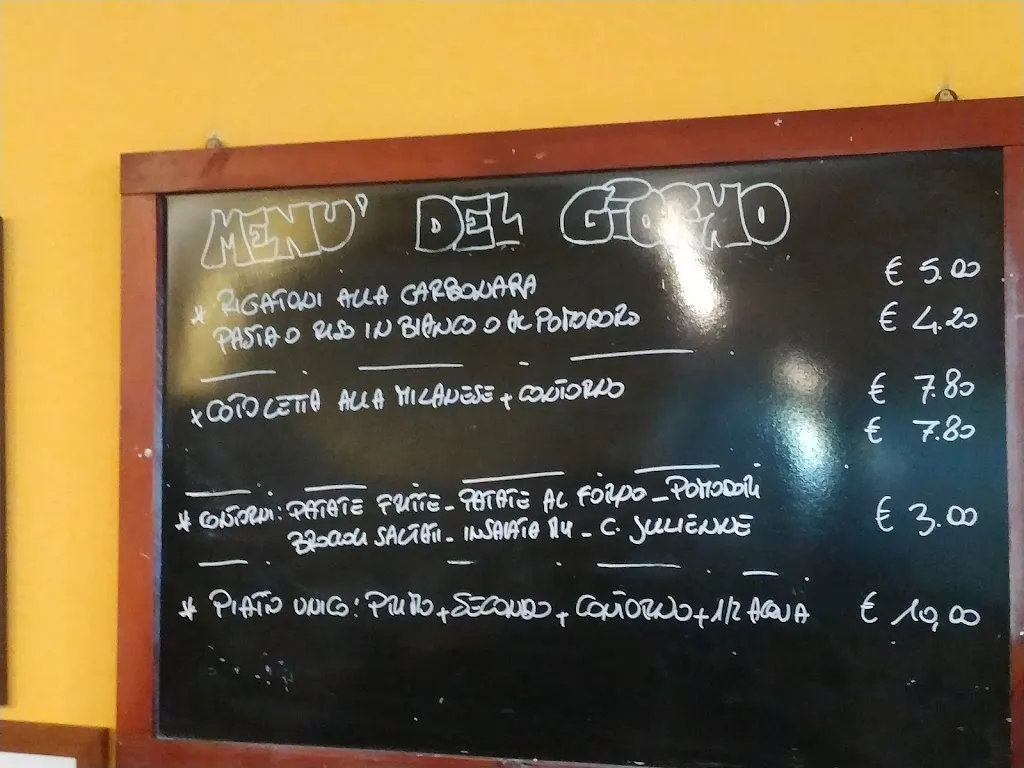 MENU' DEL GIORNO
* RIGATONI ALLA CARBONARA € 5.00
PASTA O RISO IN BIANCO O AL POMODORO € 4.20
* COTOLETTA ALLA MILANESE + CONTORNO € 7.80
€ 7.80
* CONTORNI: PATATE FRITTE - PATATE AL FORNO - POMODORI
BROCCOLI SALTATI - INSALATA MX - C. JULIENNE € 3.00
* PIATO UNICO: PRIMO + SECONDO + CONTORNO + 1/2 ACQUA € 10,00